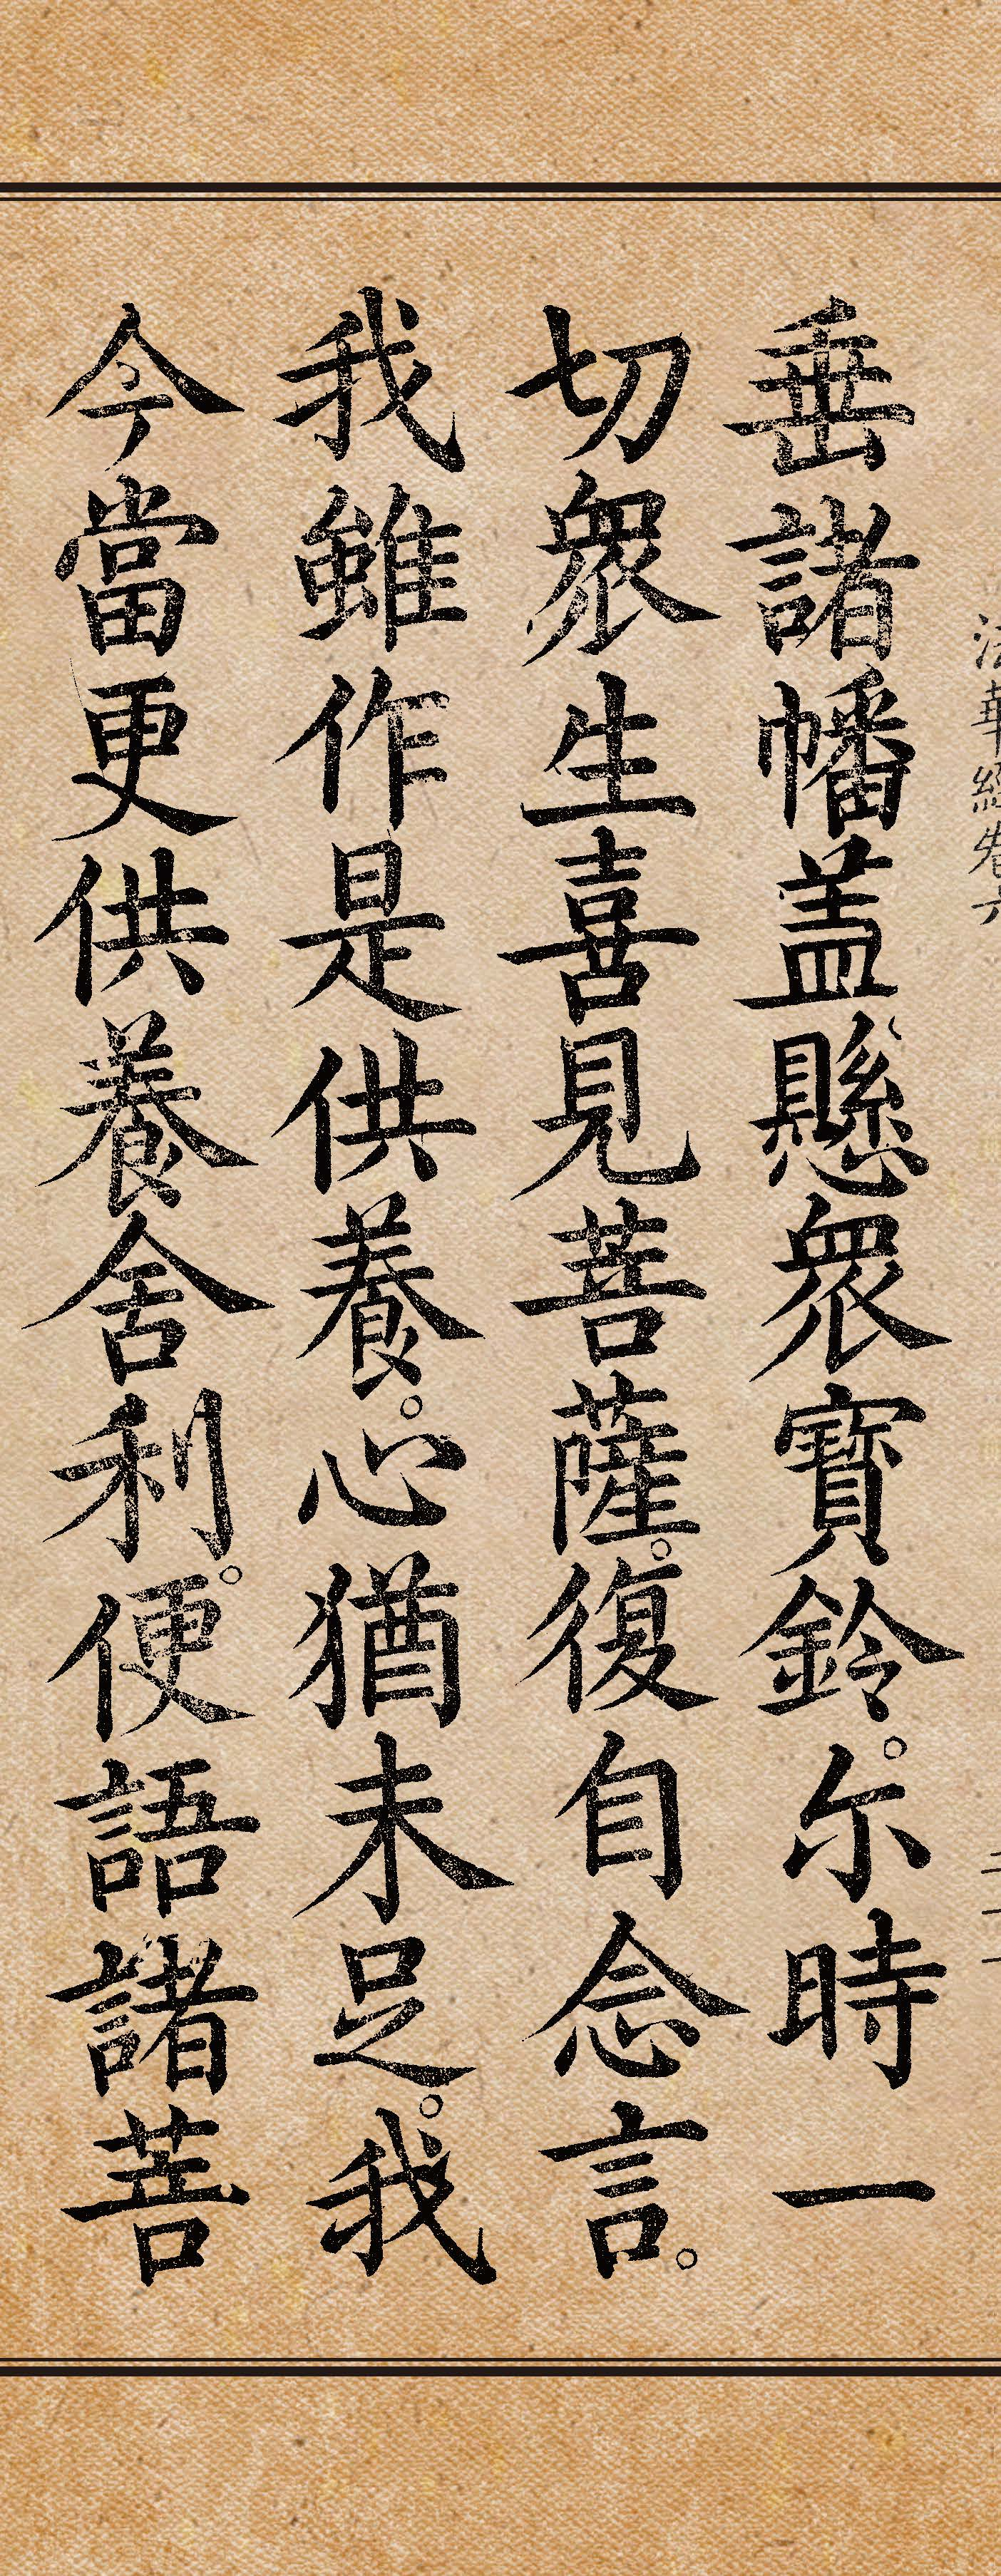 垂諸幡盖懸衆寶鈴。尒時一
切衆生喜見菩薩。復自念言。
我雖作是供養。心猶未足。我
今當更供養舍利。便語諸菩